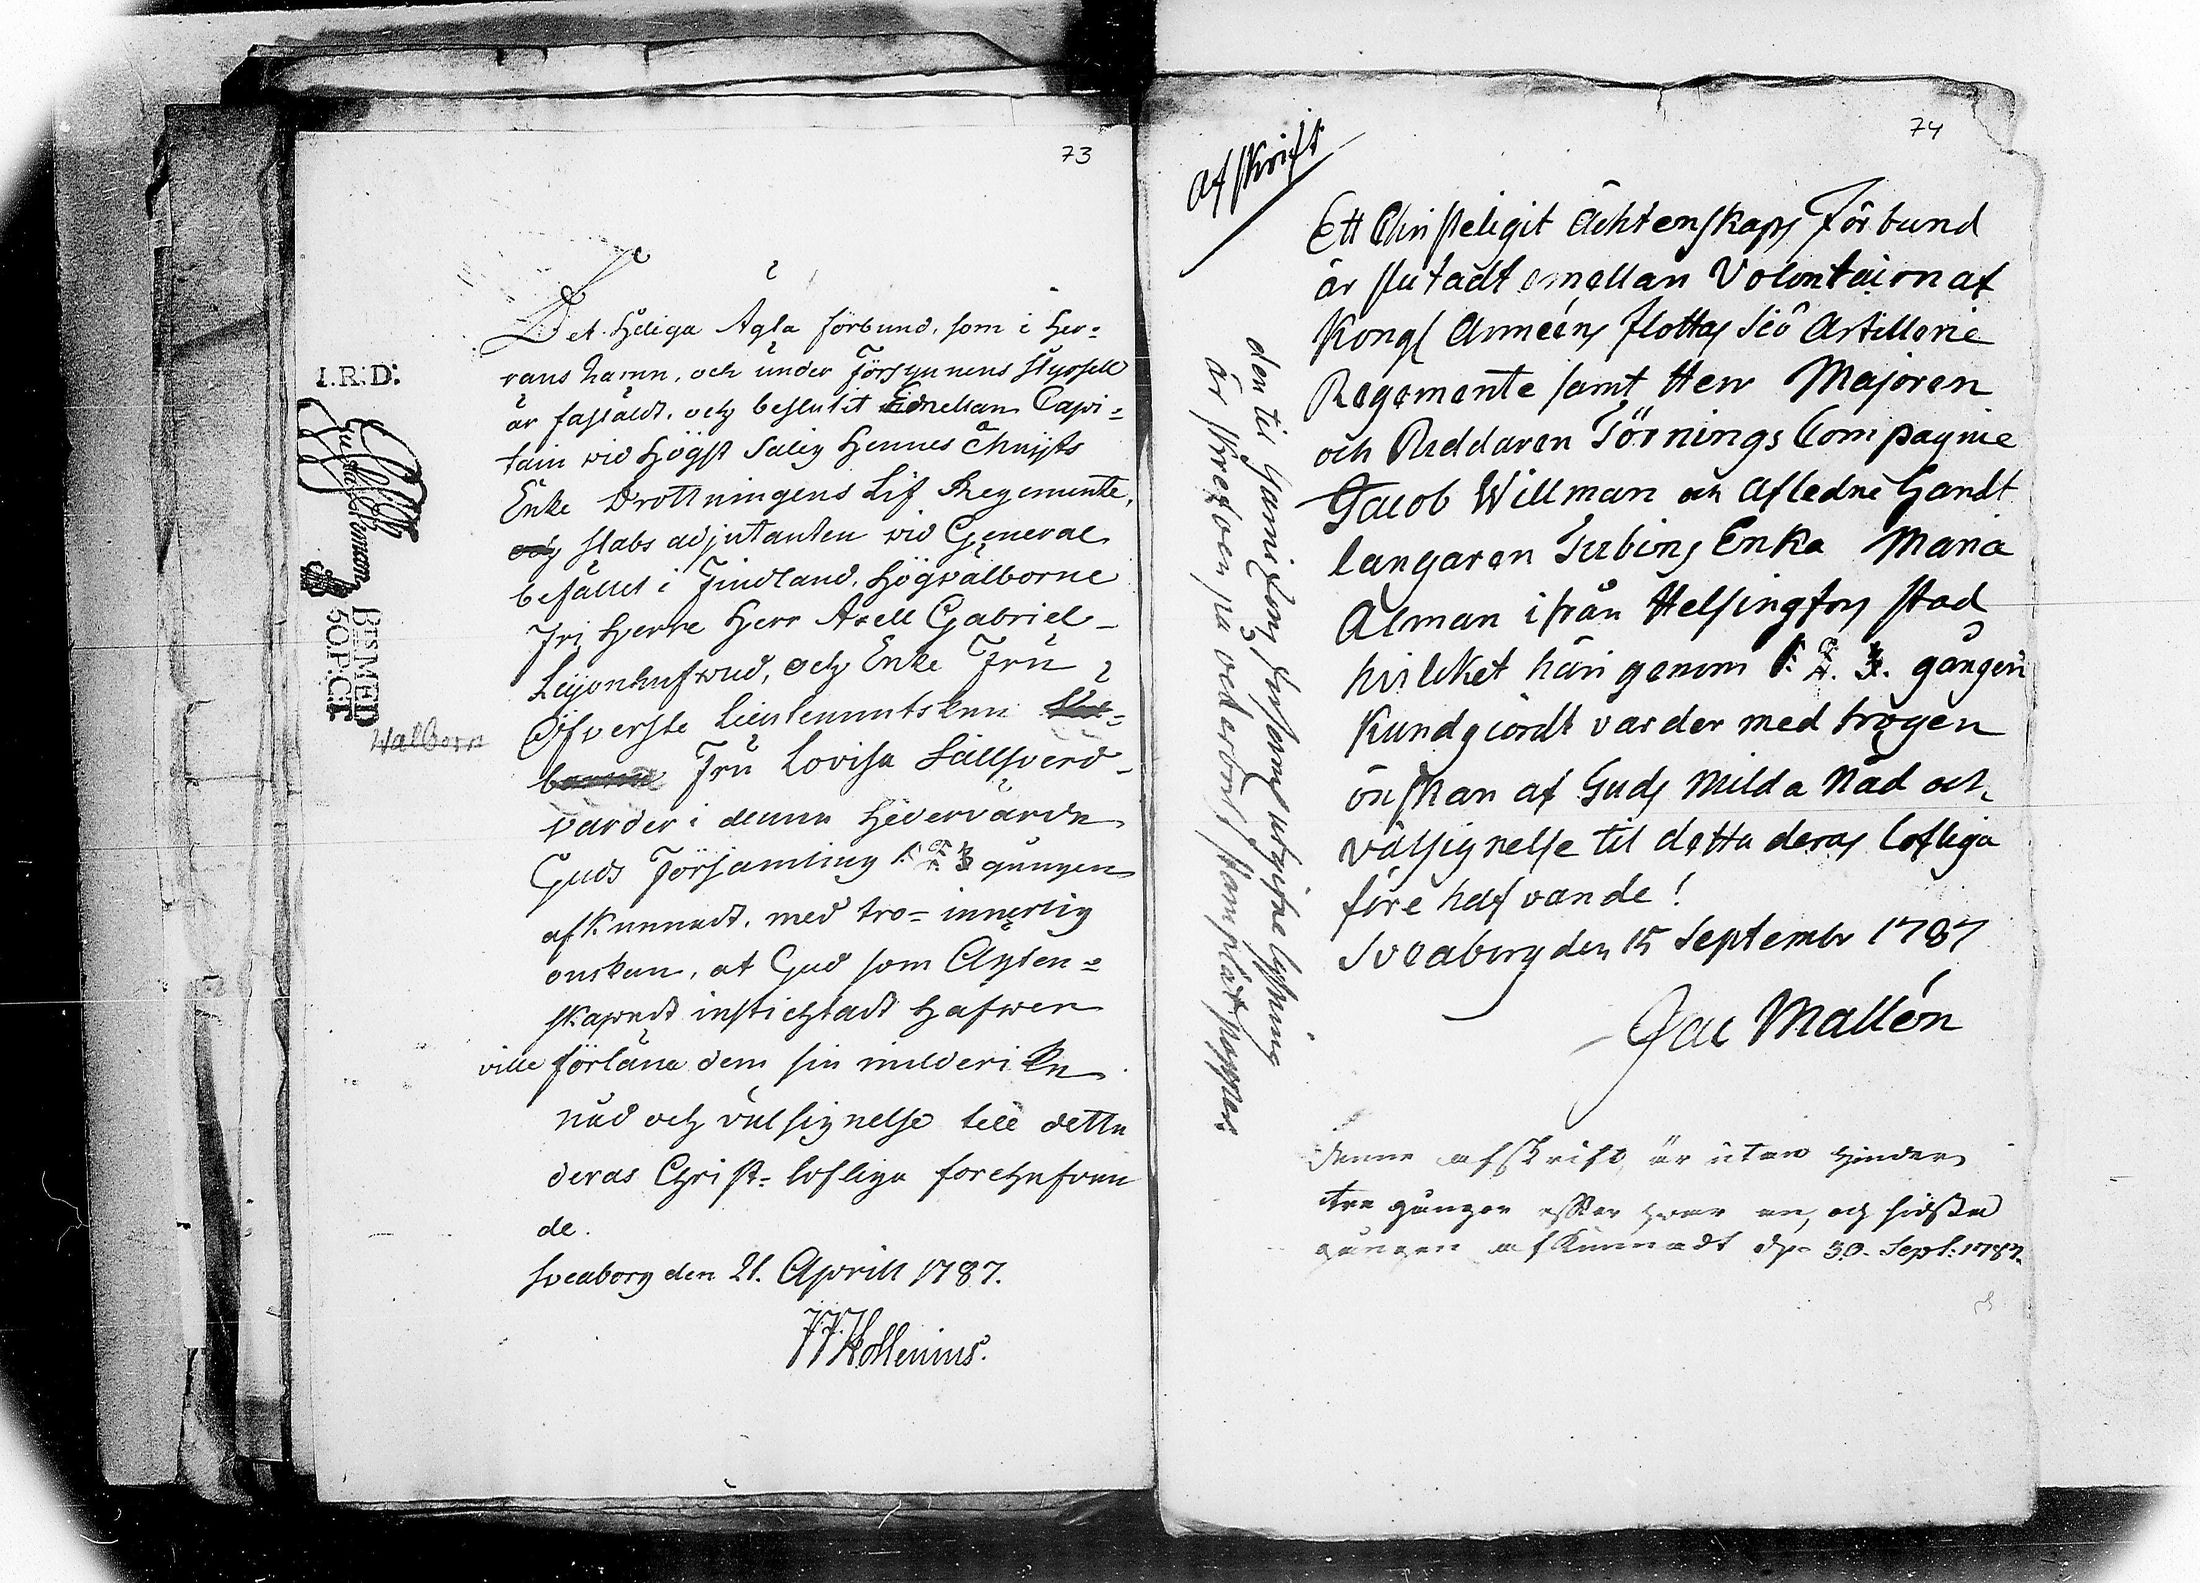 73
Det Heliga Ägta förbund, som i Her-
rans namn, och under Försynnens styrsell
är fastäldt, och beslutit Emellan Capi-
tain wid Högst Salig Hennes Maijsts
Enke Drottningens Lif Regemente,
och stabs adjutanten wid General
befället i Findland, Högvälborne
Fri Herre Herr Axell Gabriel
Leijonhufwud, och Enke Fru
Öfverste Lieutenantskan
Fru Lovisa Sällsverd
varder i denna Hedervärda
Guds Församling 1. 2. 3 gången
afkunnadt, med tro- innerlig
önskan, at Gud som Ägten-
skapedt instichtadt Hafwer
ville förläna dem sin milderika
nåd och välsignelse till detta
deras Christ- lofliga forehafvan
de.
Sveaborg den 21. Aprill 1787.
I.R:D:
BtsMED
50.P.CT.
Walborn
74
Afskrift
Ett Christeligit Ächtenskaps Förbund
är slutadt emellan Volontairn af
Kongl Armeéns flottas Siö Artillerie
Regemente samt Herr Majoren
och Riddaren Törnings Compagnie
Jacob Willman och Afledne Handt
langaren Tubins Enka Maria
Alman ifrån Helsingfors stad
hvilcket härigenom 1. 2. 3. gången
Kundgiördt varder med trogen
önskan af Guds Milda Nåd och
välsignelse til detta deras lofliga
förehafvande!
Sveaborg den 15 Septembr 1787
Jac Mallén
denne afskrift är utan hinder
tre gånger efter hvar an, och sidsta
gången afkunnadt d. 30. Sept: 1787.
den til Garnizons utgifne lysning
är skrefven på